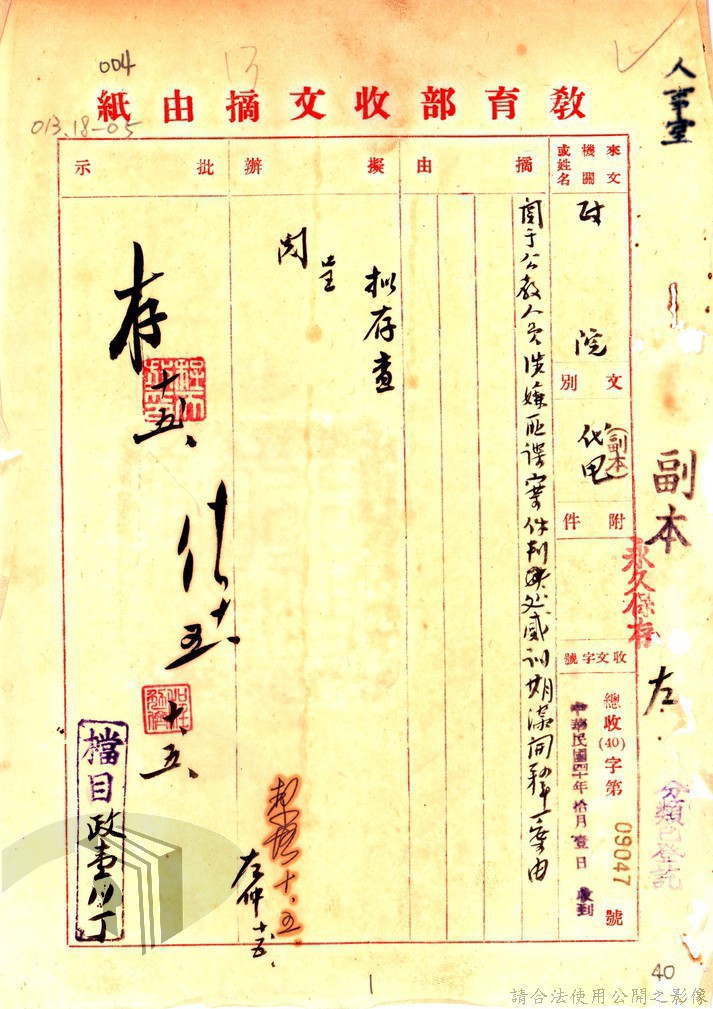 004
013.18-05
人事室
教育部收文摘由紙
來文機關或姓名
政院
文別
代電
(副本)
附件
收文字號
總收(40)字第09047號
中華民國四十年拾月壹日收到
摘由
關于公教人員涉嫌匪諜案件判決處感訓期滿開釋一案由
擬辦
擬存查
呈
閱
批示
存
十、五、
十、五、
十、五、
左仲
十、五、
副本
永久保存
左
分類已登記
檔目
政壹
丁
1
40
請合法使用公開之影像